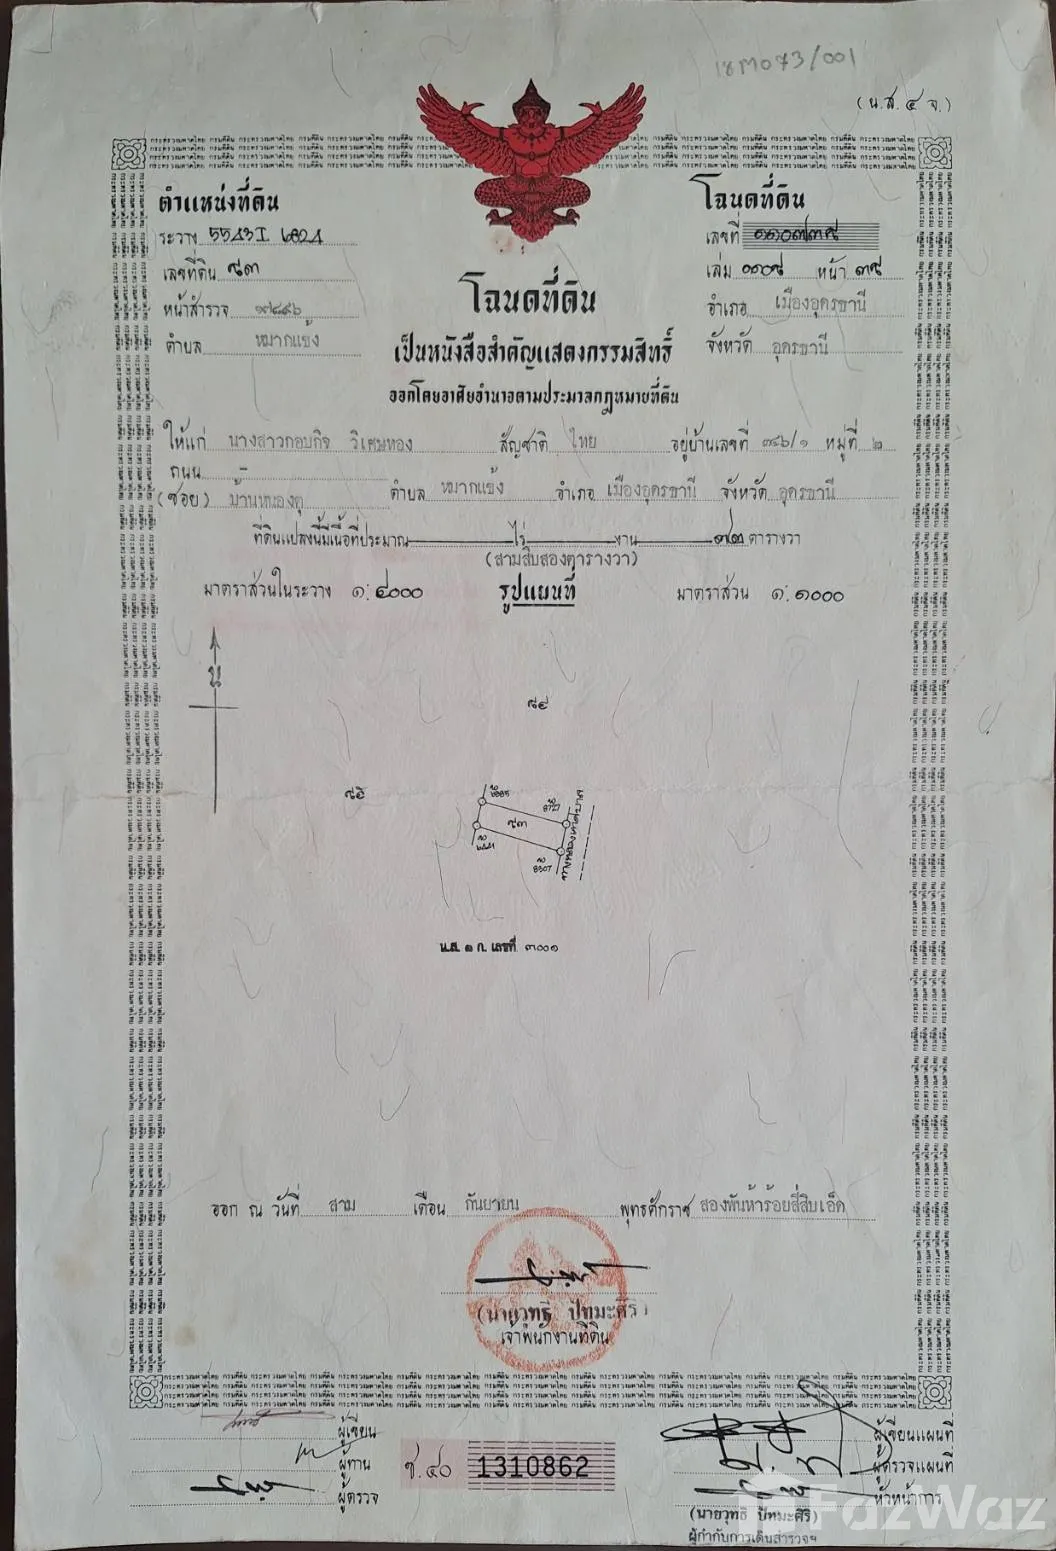 (น.ส.๔ จ.)
ตำแหน่งที่ดิน
ระวาง 5543 I
เลขที่ดิน ๙๓
หน้าสำรวจ
ตำบล หมากแข้ง
โฉนดที่ดิน
เลขที่ ๑๑๐๗๓๙
เล่ม ๑๑๐๘ หน้า ๓๙
อำเภอ เมืองอุดรธานี
จังหวัด อุดรธานี
โฉนดที่ดิน
เป็นหนังสือสำคัญแสดงกรรมสิทธิ์
ออกโดยอาศัยอำนาจตามประมวลกฎหมายที่ดิน
ให้แก่ นางสาวกอบกิจ วิเศษทอง สัญชาติ ไทย อยู่บ้านเลขที่ ๓๔๖/๑ หมู่ที่ ๒
ถนน
(ซอย) บ้านหนองตุ ตำบล หมากแข้ง อำเภอ เมืองอุดรธานี จังหวัด อุดรธานี
ที่ดินแปลงนี้มีเนื้อที่ประมาณ ไร่ งาน ๓๒ ตารางวา
(สามสิบสองตารางวา)
มาตราส่วนในระวาง ๑:๔๐๐๐ รูปแผนที่ มาตราส่วน ๑:๑๐๐๐
น
๘๔
๘๕
๙๓
น.ส. ๓ ก. เลขที่ ๓๐๐๑
ออก ณ วันที่ สาม เดือน กันยายน พุทธศักราช สองพันห้าร้อยสี่สิบเอ็ด
(นายวุทธิ ปัทมะศิริ)
เจ้าพนักงานที่ดิน
ผู้เขียน
ผู้ทาน
ผู้ตรวจ
ช.๔๐ 1310862
ผู้เขียนแผนที่
ผู้ตรวจแผนที่
หัวหน้าการ
(นายวุทธิ ปัทมะศิริ)
ผู้กำกับการเดินสำรวจฯ
FazWaz